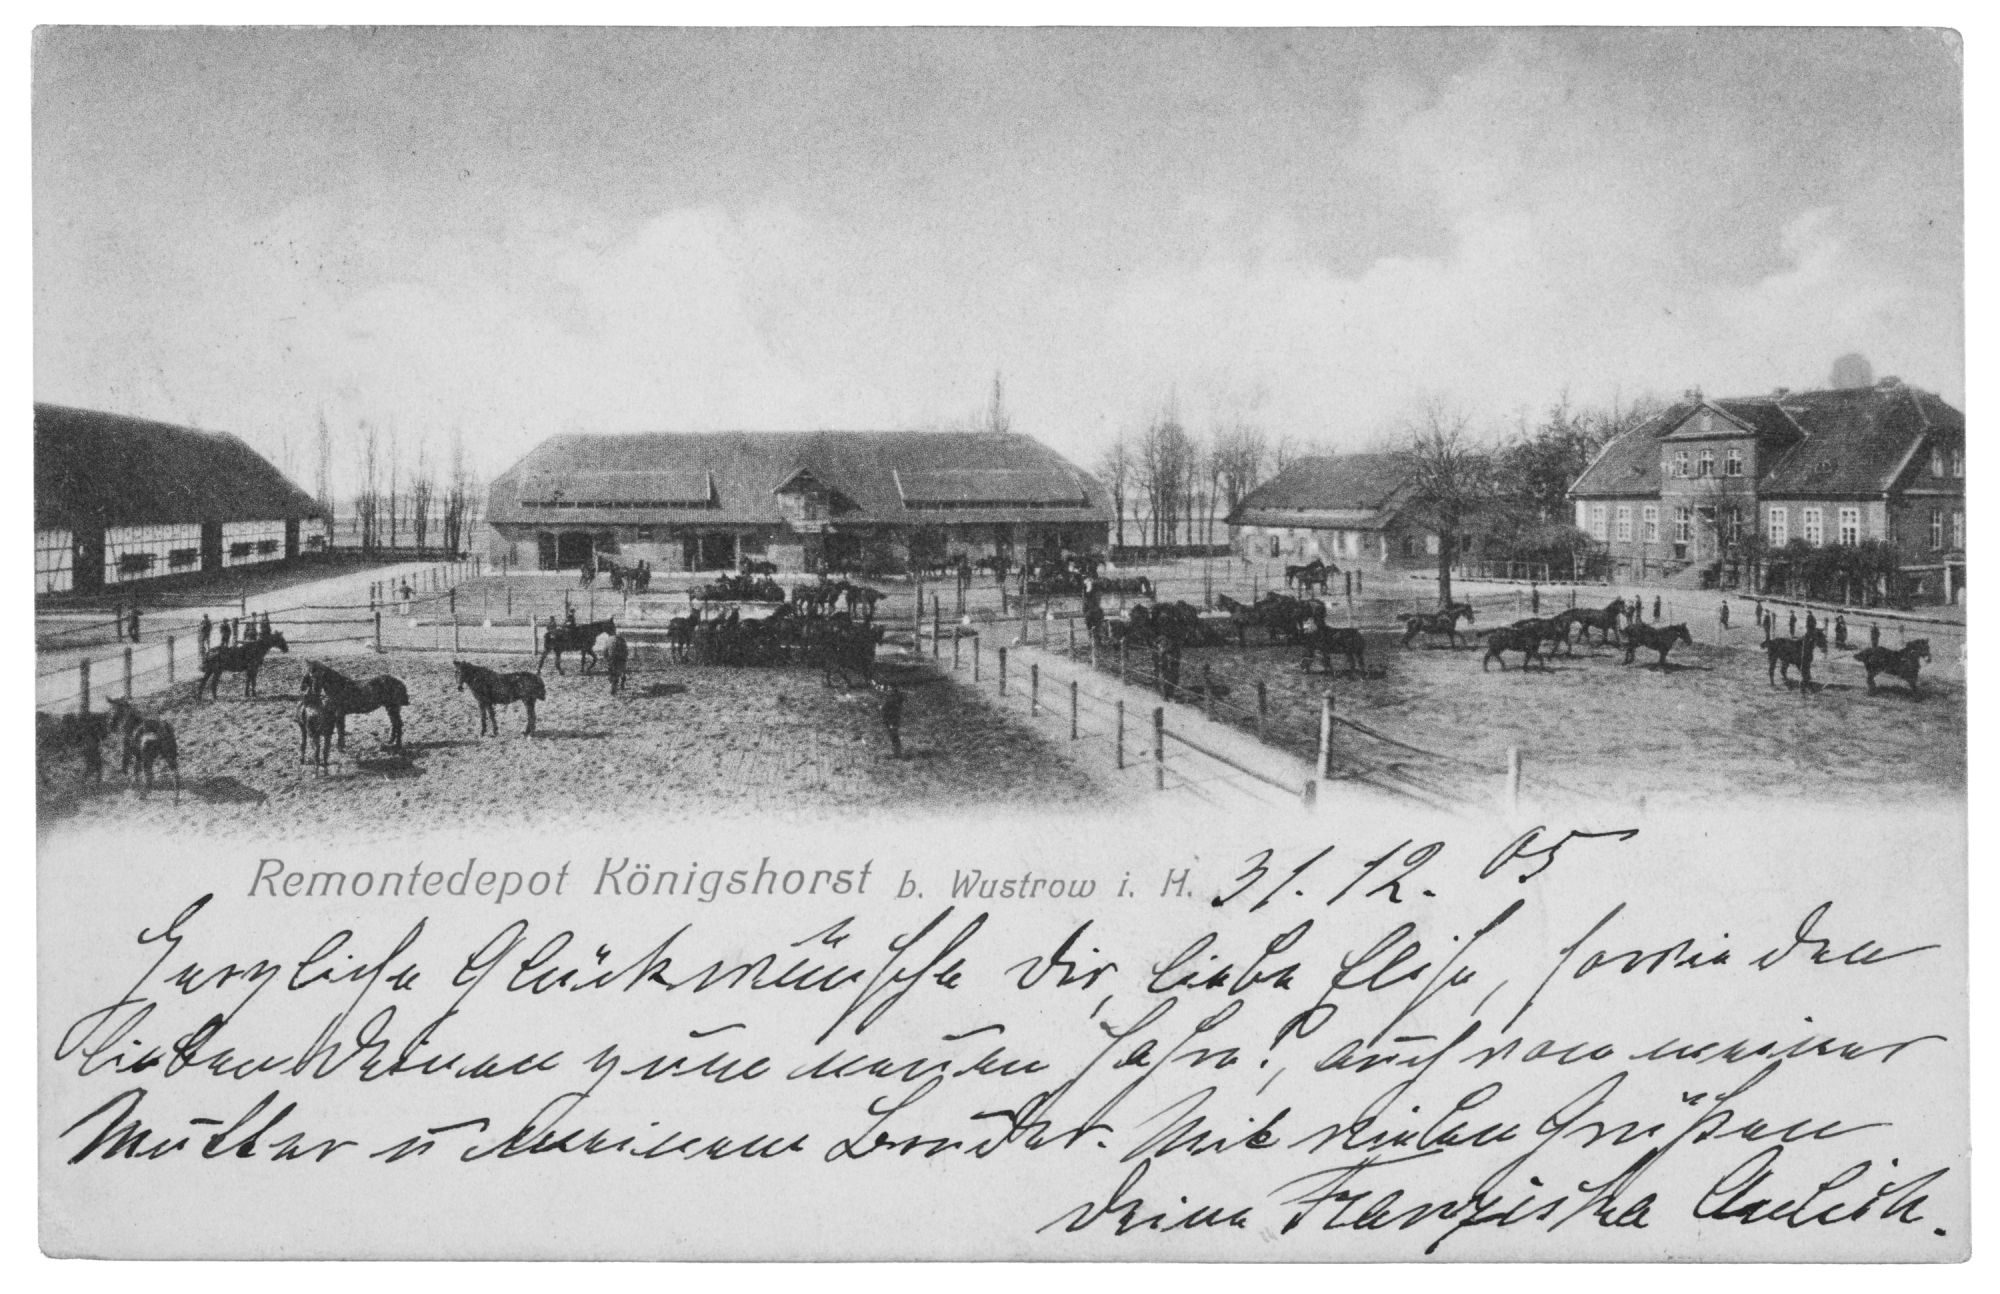 Remontedepot Königshorst b. Wustrow i. H. 31. 12. 05
Herzliche Glückwünsche Dir, liebe Elise, sowie den
lieben Deinen zum neuen Jahre!, auch von meiner
Mutter u meinem Bruder. Mit vielen Grüßen
Deine Franziska